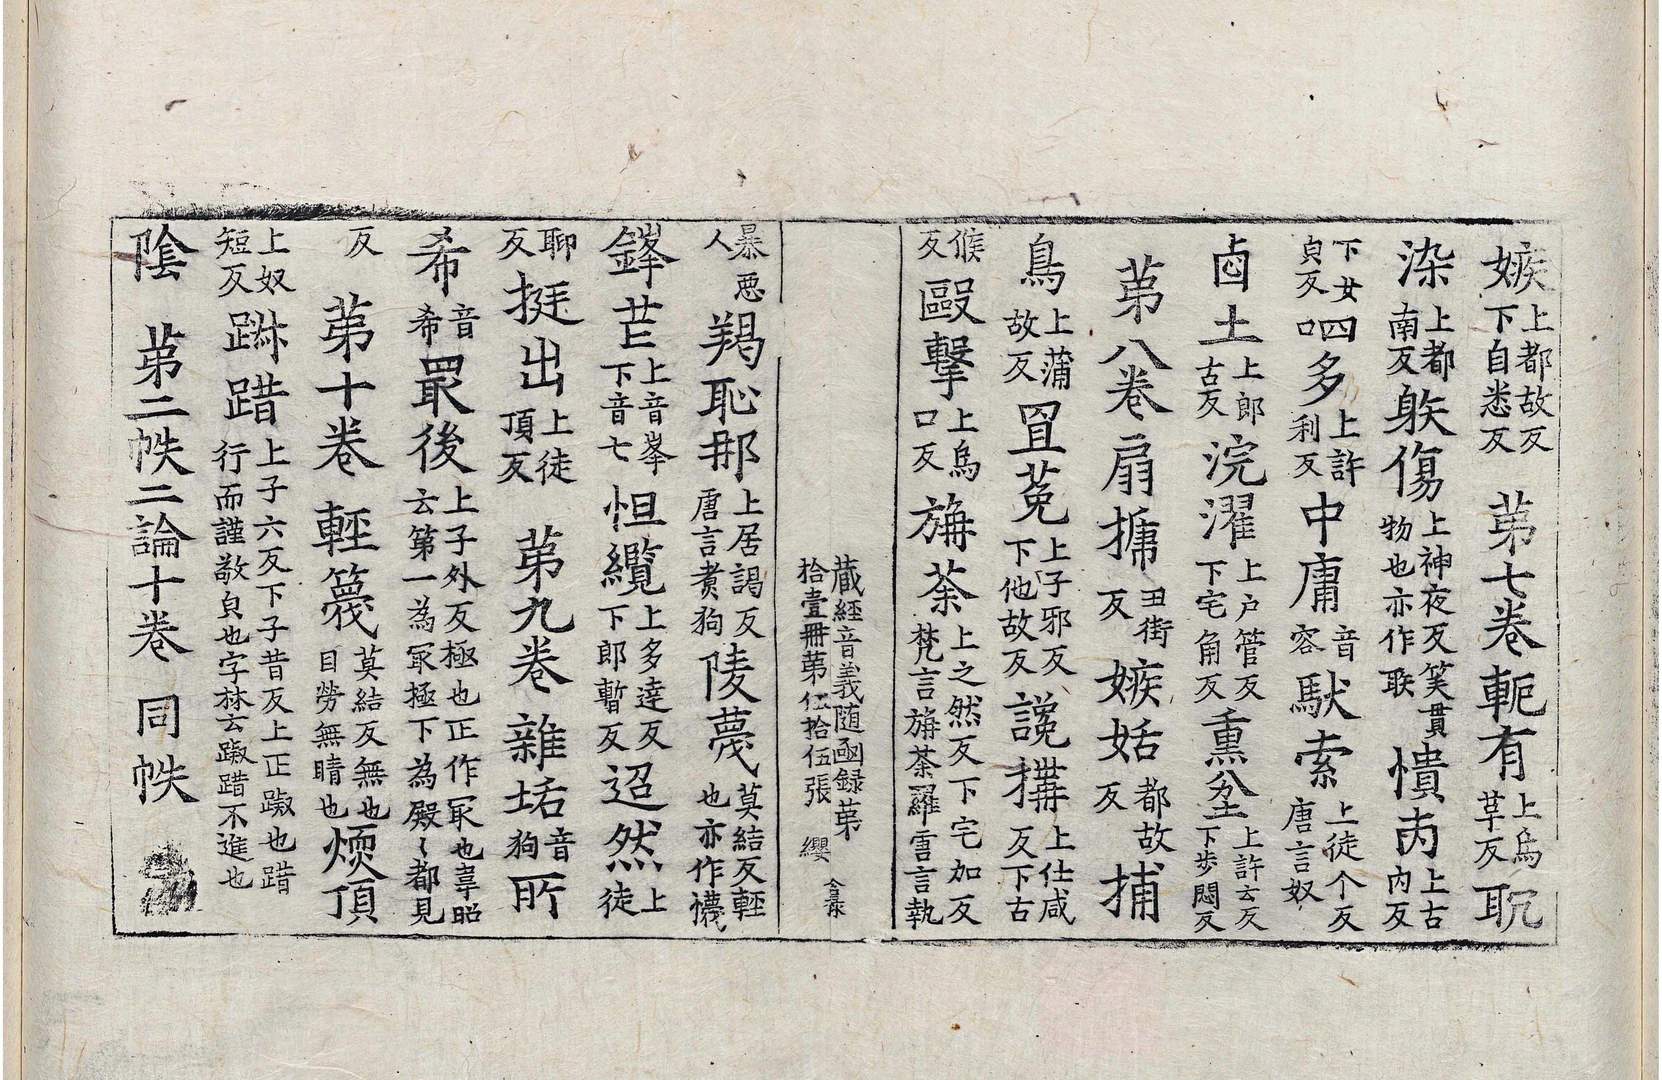 嫉上都故反下自悉反　第七卷軛有上烏革反耴
染上都南反躲傷上神夜反笑貫物也亦作䠶憒丙上古內反
下女貞反呬多上許利反中庸音容馱索上徒个反唐言奴
卤土上郎古反浣濯上户管反下宅角反熏坌上許云反下步悶反
第八卷扇搋丑街反嫉姤都故反捕
鳥上蒲故反罝菟上子邪反下他故反讒搆上仕咸反下古
候反毆擊上烏口反旃荼上之然反下宅加反梵言旃荼羅唐言執
藏經音義随函録第拾壹冊第伍拾伍張　纓
暴惡人羯恥那上居謁反唐言煮狗陵蔑莫結反輕也亦作懱
鋒芒上音峯下音亡怛纜上多達反下郎暫反迢然上徒
聊反挺出上徒頂反　第九卷　雜垢音狗所
希音希最後上子外反極也正作冣也韋昭云第一為冣極下為殿〻都見
反　第十卷　輕篾莫結反無也目勞無睛也煗頂
上奴短反踧踖上子六反下子昔反上正踧也踖行而謹敬皃也字林云踧踖不進也
陰　第二帙二論十卷　同帙